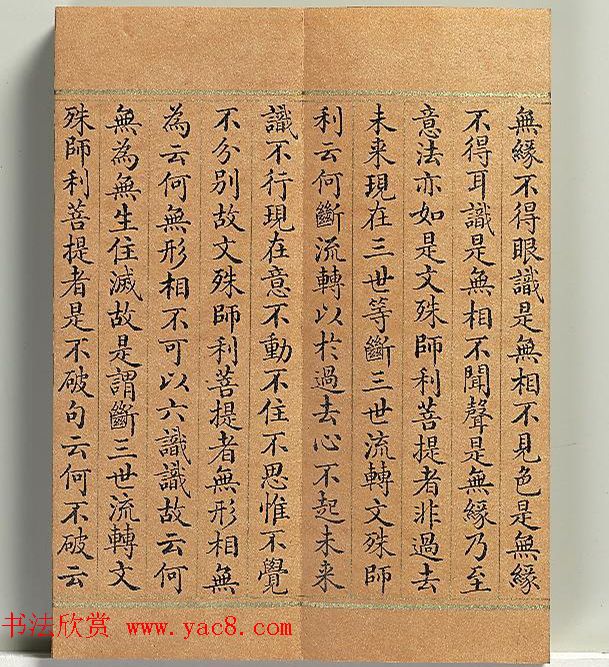 無緣不得眼識是無相不見色是無緣
不得耳識是無相不聞聲是無緣乃至
意法亦如是文殊師利菩提者非過去
未来現在三世等斷三世流轉文殊師
利云何斷流轉以於過去心不起未来
識不行現在意不動不住不思惟不覺
不分別故文殊師利菩提者無形相無
為云何無形相不可以六識識故云何
無為無生住滅故是謂斷三世流轉文
殊師利菩提者是不破句云何不破云
书法欣赏 www.yac8.com